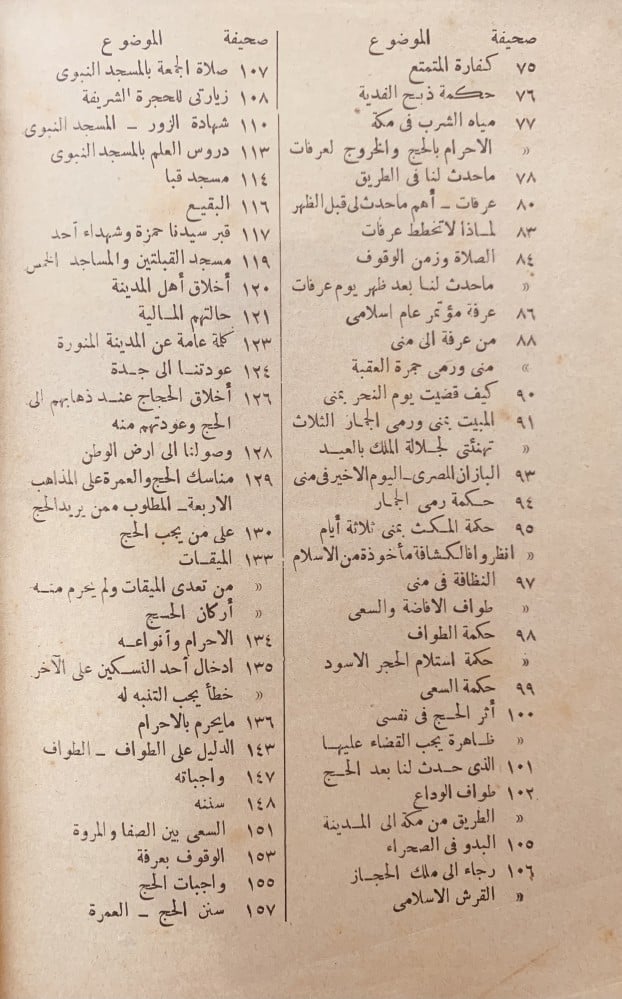 صحيفة الموضوع
٧٥ كفارة المتمتع
٧٦ حكمة ذبح الفدية
٧٧ مياه الشرب فى مكة
« الاحرام بالحج والخروج لعرفات
٧٨ ماحدث لنا فى الطريق
٨٠ عرفات ـ أهم ماحدث لى قبل الظهر
٨٣ لماذا لاتخطط عرفات
٨٤ الصلاة وزمن الوقوف
« ماحدث لنا بعد ظهر يوم عرفات
٨٦ عرفة مؤتمر عام اسلامى
٨٨ من عرفة الى منى
« منى ورمى جمرة العقبة
٩٠ كيف قضيت يوم النحر بمنى
٩١ المبيت بمنى ورمى الجمار الثلاث
« تهنئتى لجلالة الملك بالعيد
٩٣ البازان المصرى ـ اليوم الاخير فى منى
٩٤ حكمة رمى الجمار
٩٥ حكمة المكث بمنى ثلاثة أيام
« انظروا فالكشافة مأخوذة من الاسلام
٩٧ النظافة فى منى
« طواف الافاضة والسعى
٩٨ حكمة الطواف
« حكمة استلام الحجر الاسود
٩٩ حكمة السعى
١٠٠ أثر الحج فى نفسى
« ظاهرة يجب القضاء عليها
١٠١ الذى حدث لنا بعد الحج
١٠٢ طواف الوداع
« الطريق من مكة الى المدينة
١٠٥ البدو فى الصحراء
١٠٦ رجاء الى ملك الحجاز
« القرش الاسلامى
صحيفة الموضوع
١٠٧ صلاة الجمعة بالمسجد النبوى
١٠٨ زيارتى للحجرة الشريفة
١١٠ شهادة الزور ـ المسجد النبوى
١١٣ دروس العلم بالمسجد النبوى
١١٤ مسجد قبا
١١٦ البقيع
١١٧ قبر سيدنا حمزة وشهداء أحد
١١٩ مسجد القبلتين والمساجد الخمس
١٢٠ أخلاق أهل المدينة
١٢١ حالتهم المالية
١٢٣ كلمة عامة عن المدينة المنورة
١٢٤ عودتنا الى جدة
١٢٦ أخلاق الحجاج عند ذهابهم الى
الحج وعودتهم منه
١٢٨ وصولنا الى ارض الوطن
١٢٩ مناسك الحج والعمرة على المذاهب
الاربعة ـ المطلوب ممن يريد الحج
١٣٠ على من يجب الحج
١٣٣ الميقات
« من تعدى الميقات ولم يحرم منه
« أركان الحج
١٣٤ الاحرام وأنواعه
١٣٥ ادخال أحد النسكين على الآخر
« خطأ يجب التنبه له
١٣٦ مايحرم بالاحرام
١٤٣ الدليل على الطواف ـ الطواف
١٤٧ واجباته
١٤٨ سننه
١٥١ السعى بين الصفا والمروة
١٥٣ الوقوف بعرفة
١٥٥ واجبات الحج
١٥٧ سنن الحج ـ العمرة